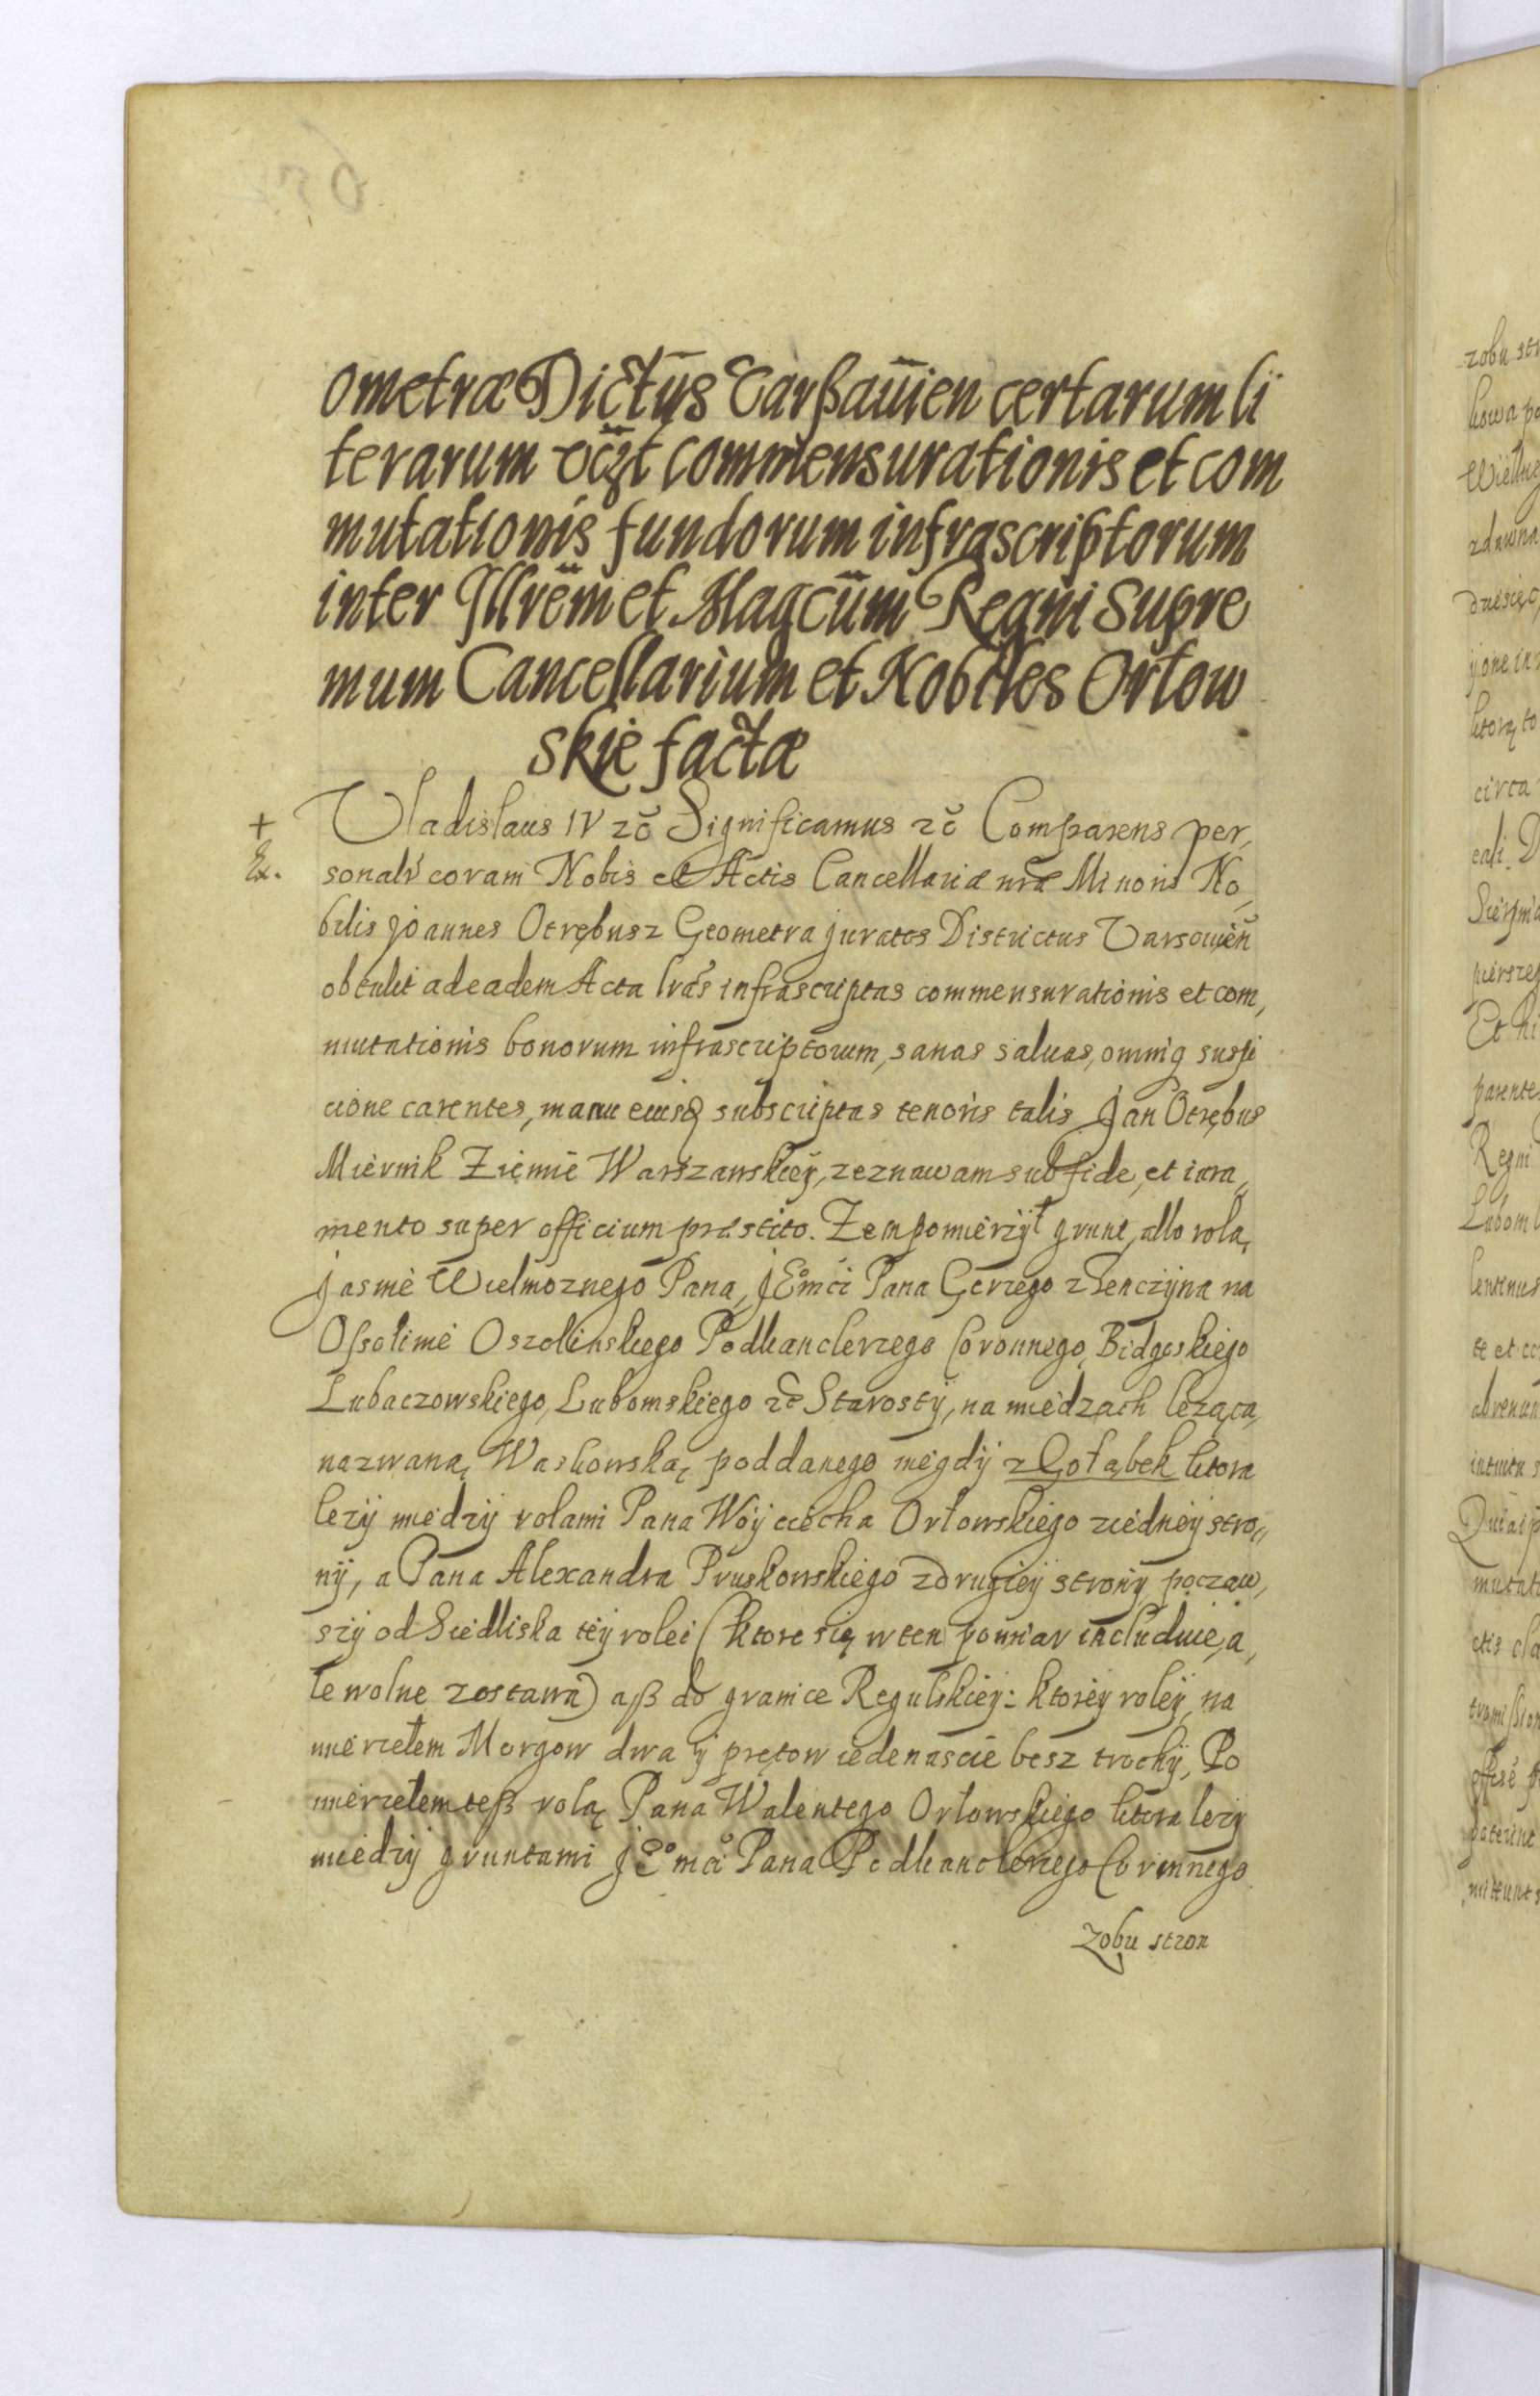 ometræ Dictus Varßavien certarum li
terarum commensurationis et com
mutationis fundorum infrascriptorum
inter Jllrem et Magcum Regni Supre
mum Cancellarium et Nobiles Orłow
skie factæ
+ Vladislaus IV zc Significamus zc Comparens per,
Ex. sonalr coram Nobis et Actis Cancellariæ nræ Minoris No,
bilis Joannes Otrębusz Geometra juratus Districtus Varsouien
obtulit ad eadem Acta lras infrascriptas commensurationis et com,
mutationis bonorum infrascriptorum, sanas saluas, omniq suspi
cione carentes, manu eiusq subscriptas tenoris talis Jan Otrębus
Miernik Ziemie Warszawskiey, zeznawam sub fide, et iura,
mento super officium præstito. Zem pomierzÿł grunt, albo rolą,
Jasnie Wielmoznego Pana, JEo mci Pana Gerzego z Tenczÿna na
Ossolinie Oszolinskiego Podkanclerzego Coronnego, Bidgoskiego
Lubaczowskiego, Lubomskiego zc Starostÿ, na miedzach lezącą,
nazwaną Waskowską, poddanego niegdÿ z Gołąbek ktora
lezÿ miedzÿ rolami Pana Wóÿciecha Orłowskiego ziedneÿ stro,
nÿ, a Pana Alexandra Pruskowskiego zdrugieÿ stronÿ, począw,
szÿ od Siedliska teÿ rolei (ktore się w ten pomiar includuie, a,
le wolne zostawa) aß do granice Regulskieÿ: ktoreÿ roleÿ, na
mierzełem Morgow dwa ÿ prętow iedenascie besz trochÿ, Po
mierzełem teß rolą Pana Walentego Orłowskiego ktora lezÿ
miedzÿ gruntami JEo mci Pana Podkanclerzego Coronnego
Zobu stron